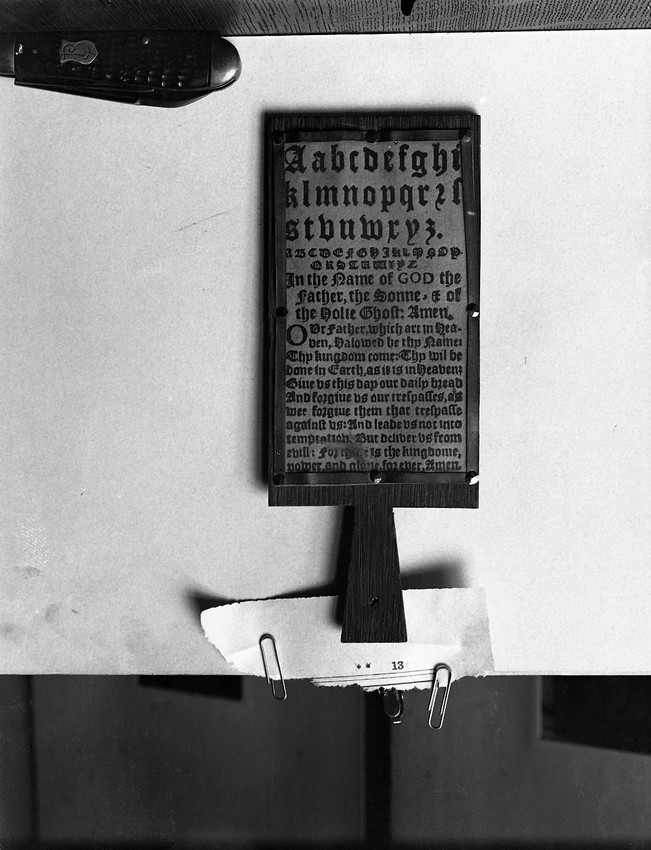 Aabcdefghi
klmnopqrꝛſ
stvuwxyz.
ABCDEFGHIJKLMNOP
QRSTUWXYZ
In the Name of GOD the
Father, the Sonne, & of
the Holie Ghost: Amen.
OVr Father, which art in Hea-
ven, Halowed be thy Name:
Thy kingdom come: Thy wil be
done in Earth, as it is in Heaven:
Giue vs this day our daily bread
And forgiue vs our trespasses, as
wee forgiue them that trespasse
against vs: And leade vs not into
temptation. But deliver vs from
evill: For is the kingdome,
power, and glorie, for ever, Amen.
** 13